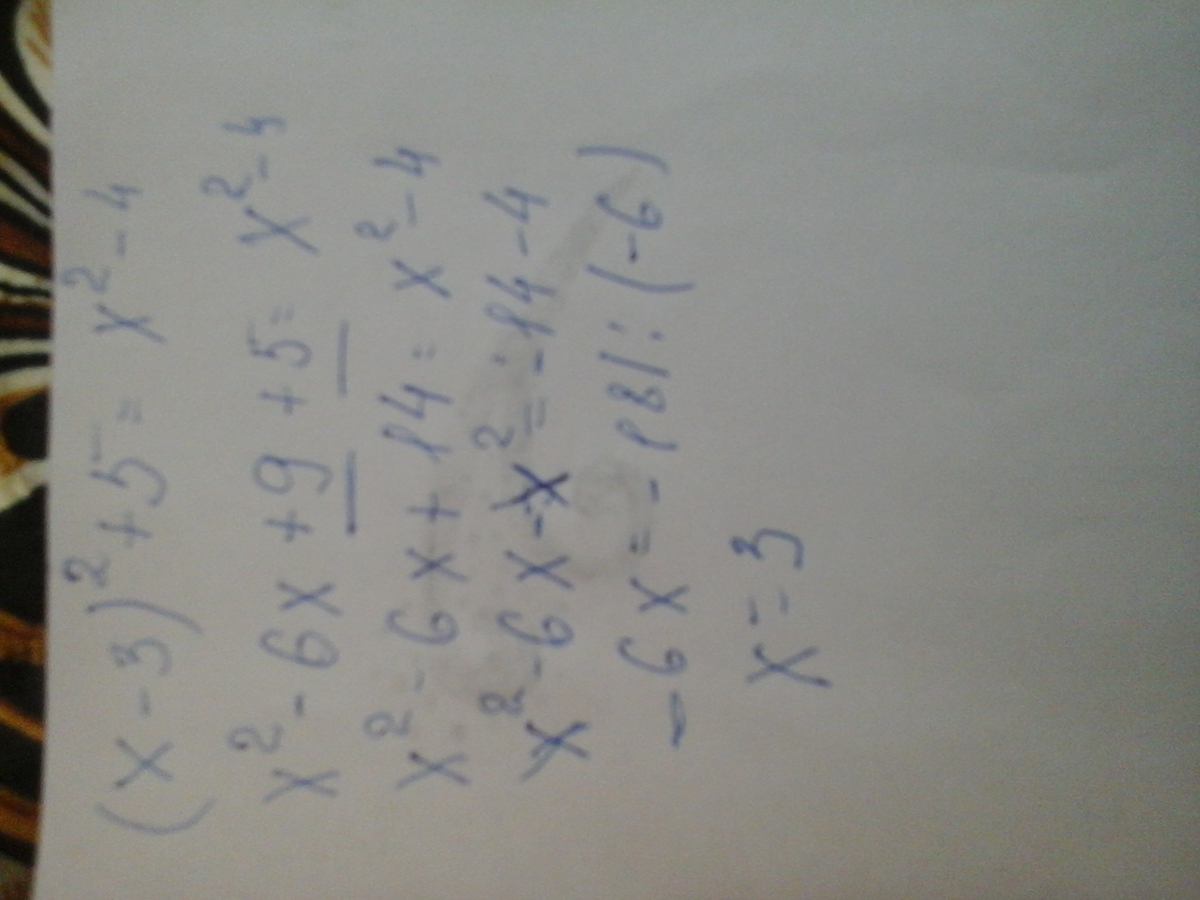 (x-3)²+5=x²-4
x²-6x+9+5=x²-4
x²-6x+14=x²-4
x²-6x-x²=-14-4
-6x=-18|:(-6)
x=3